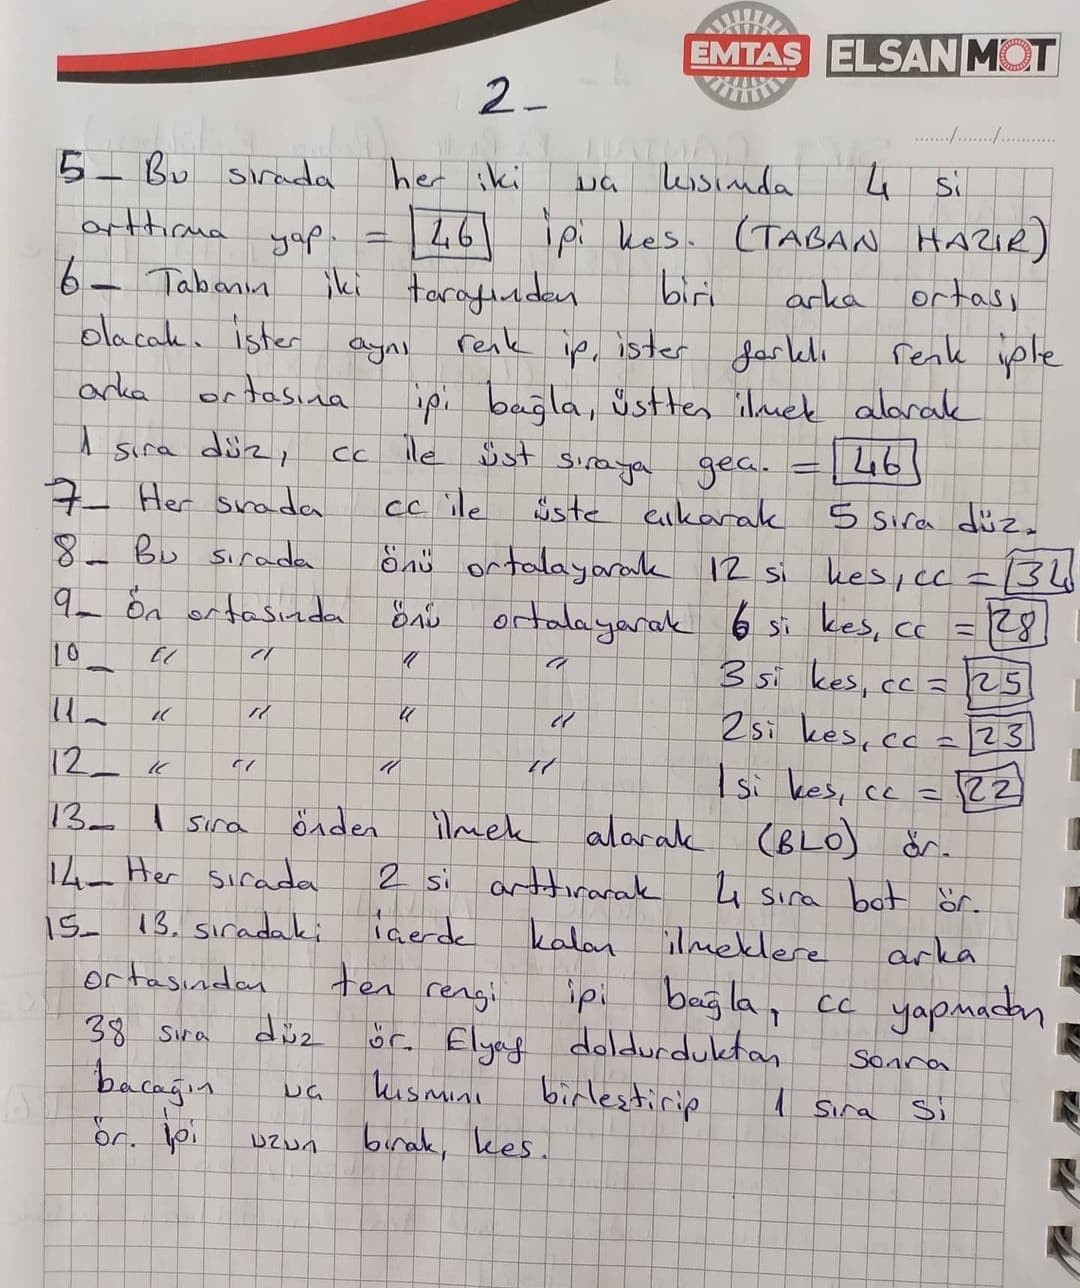 EMTAŞ ELSAN MOT
2-
....../....../............
5- Bu sırada her iki uç kısımda 4 si
arttırma yap. = 46 ipi kes. (TABAN HAZIR)
6- Tabanın iki tarafından biri arka ortası
olacak. İster aynı renk ip, ister farklı renk iple
arka ortasına ipi bağla, üstten ilmek alarak
1 sıra düz, cc ile üst sıraya geç. = 46
7- Her sırada cc ile üste çıkarak 5 sıra düz.
8- Bu sırada önü ortalayarak 12 si kes, cc = 34
9- Ön ortasında önü ortalayarak 6 si kes, cc = 28
10- " " " " 3 si kes, cc = 25
11- " " " " 2 si kes, cc = 23
12- " " " " 1 si kes, cc = 22
13- 1 sıra önden ilmek alarak (BLO) ör.
14- Her sırada 2 si arttırarak 4 sıra bot ör.
15- 13. sıradaki içerde kalan ilmeklere arka
ortasından ten rengi ipi bağla, cc yapmadan
38 sıra düz ör. Elyaf doldurduktan sonra
bacağın uç kısmını birleştirip 1 sıra si
ör. İpi uzun bırak, kes.